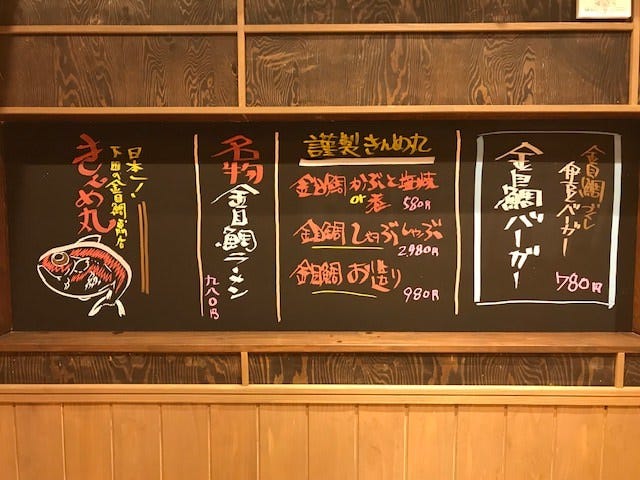 日本一!
下田の金目鯛専店
きんめ丸
名物
金目鯛ラーメン
九八〇円
謹製きんめ丸
金目鯛かぶと塩焼
or煮 580円
金目鯛しゃぶしゃぶ
2,980円
金目鯛お造り
980円
金目鯛
伊豆バーガー
金目鯛バーガー
780円